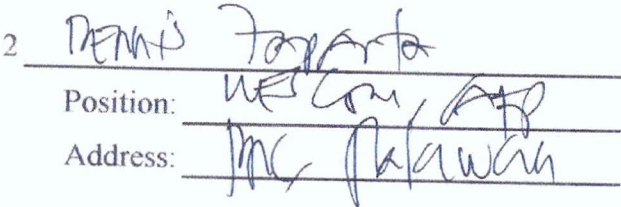 2 DENNIS Zaparta
Position: WESCOM, AFP
Address: PPC, Palawan